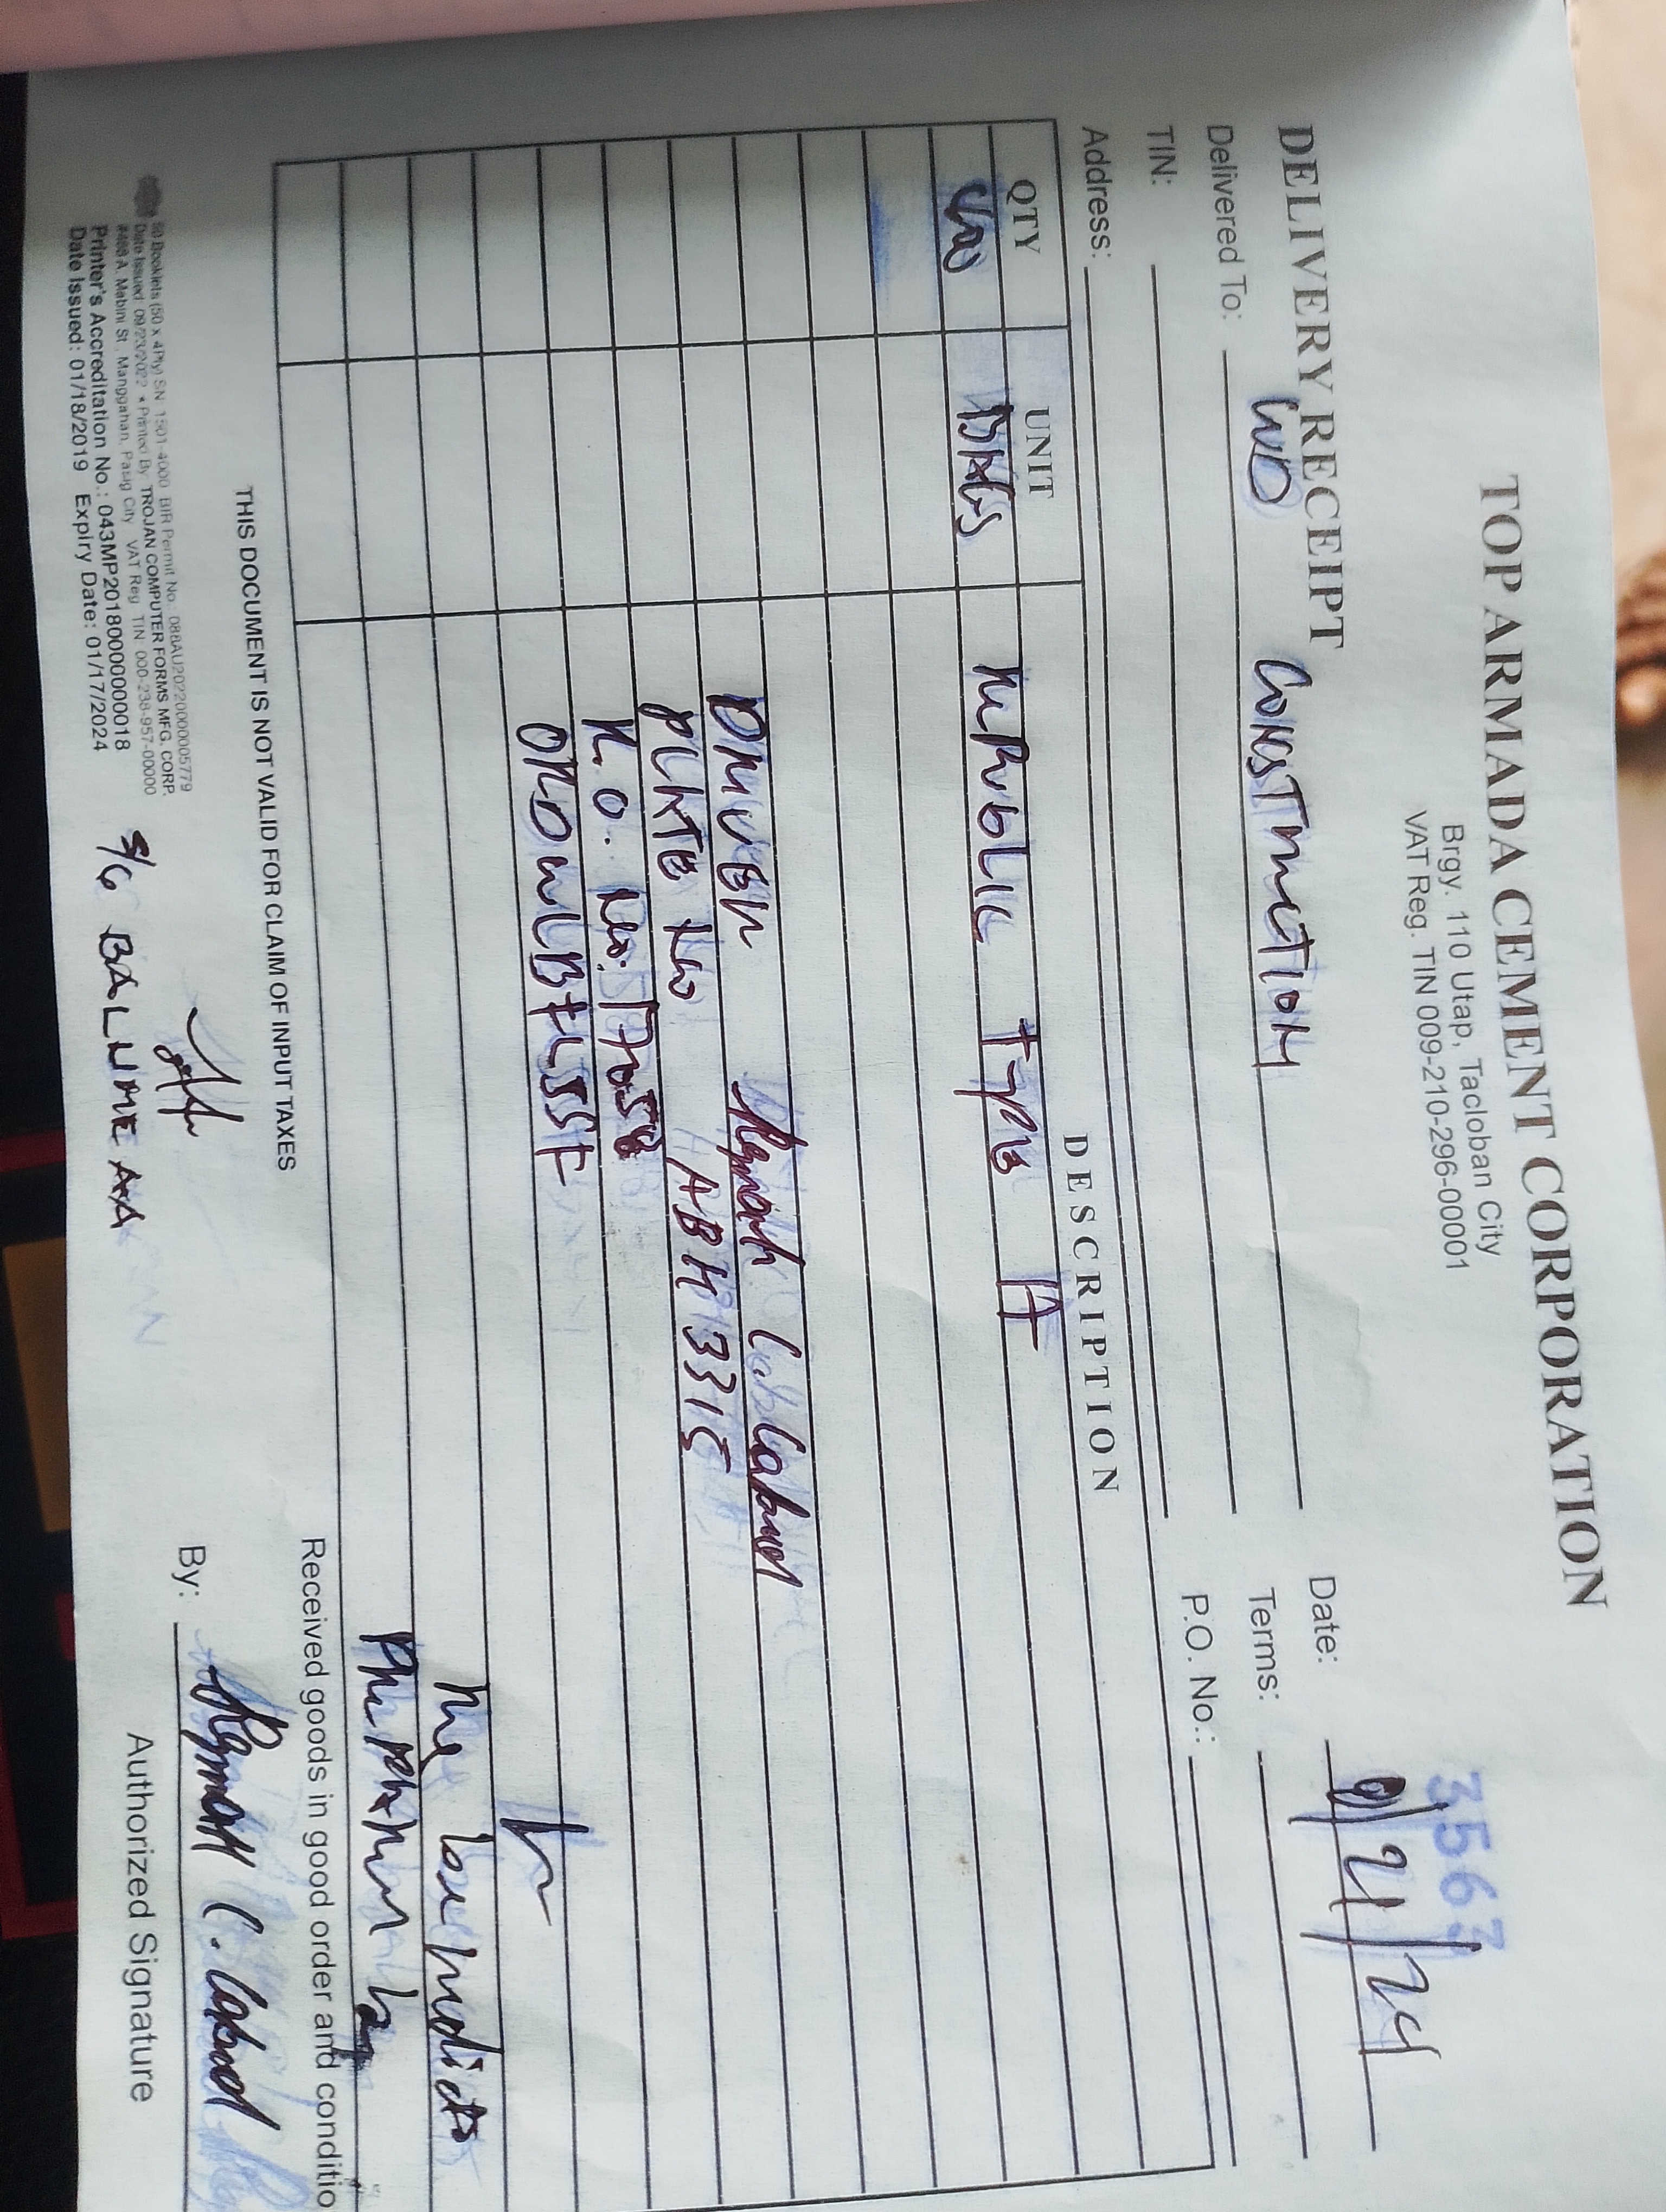 TOP ARMADA CEMENT CORPORATION
Brgy. 110 Utap, Tacloban City
VAT Reg. TIN 009-210-296-00001
3567
DELIVERY RECEIPT
Date: 9/21/24
Delivered To: CWD CONSTRUCTION
Terms:
TIN:
P.O. No.:
Address:
QTY UNIT DESCRIPTION
BAGS REPUBLIC TYPE 1T
DRIVER Reymark C. Cabuel
PLATE NO ABH 3315
R.O. No. 17058
Received goods in good order and conditio
THIS DOCUMENT IS NOT VALID FOR CLAIM OF INPUT TAXES
By: Reymark C. Cabuel
Authorized Signature
50 Booklets (50 x 4Ply) SN 1501-4000 BIR Permit No.: 088AU20220000005779
Date Issued: 09/23/2022 • Printed By TROJAN COMPUTER FORMS MFG. CORP.
#488 A. Mabini St. Manggahan, Pasig City VAT Reg TIN 000-238-957-00000
Printer's Accreditation No.: 043MP20180000000018
Date Issued: 01/18/2019 Expiry Date: 01/17/2024
S/G